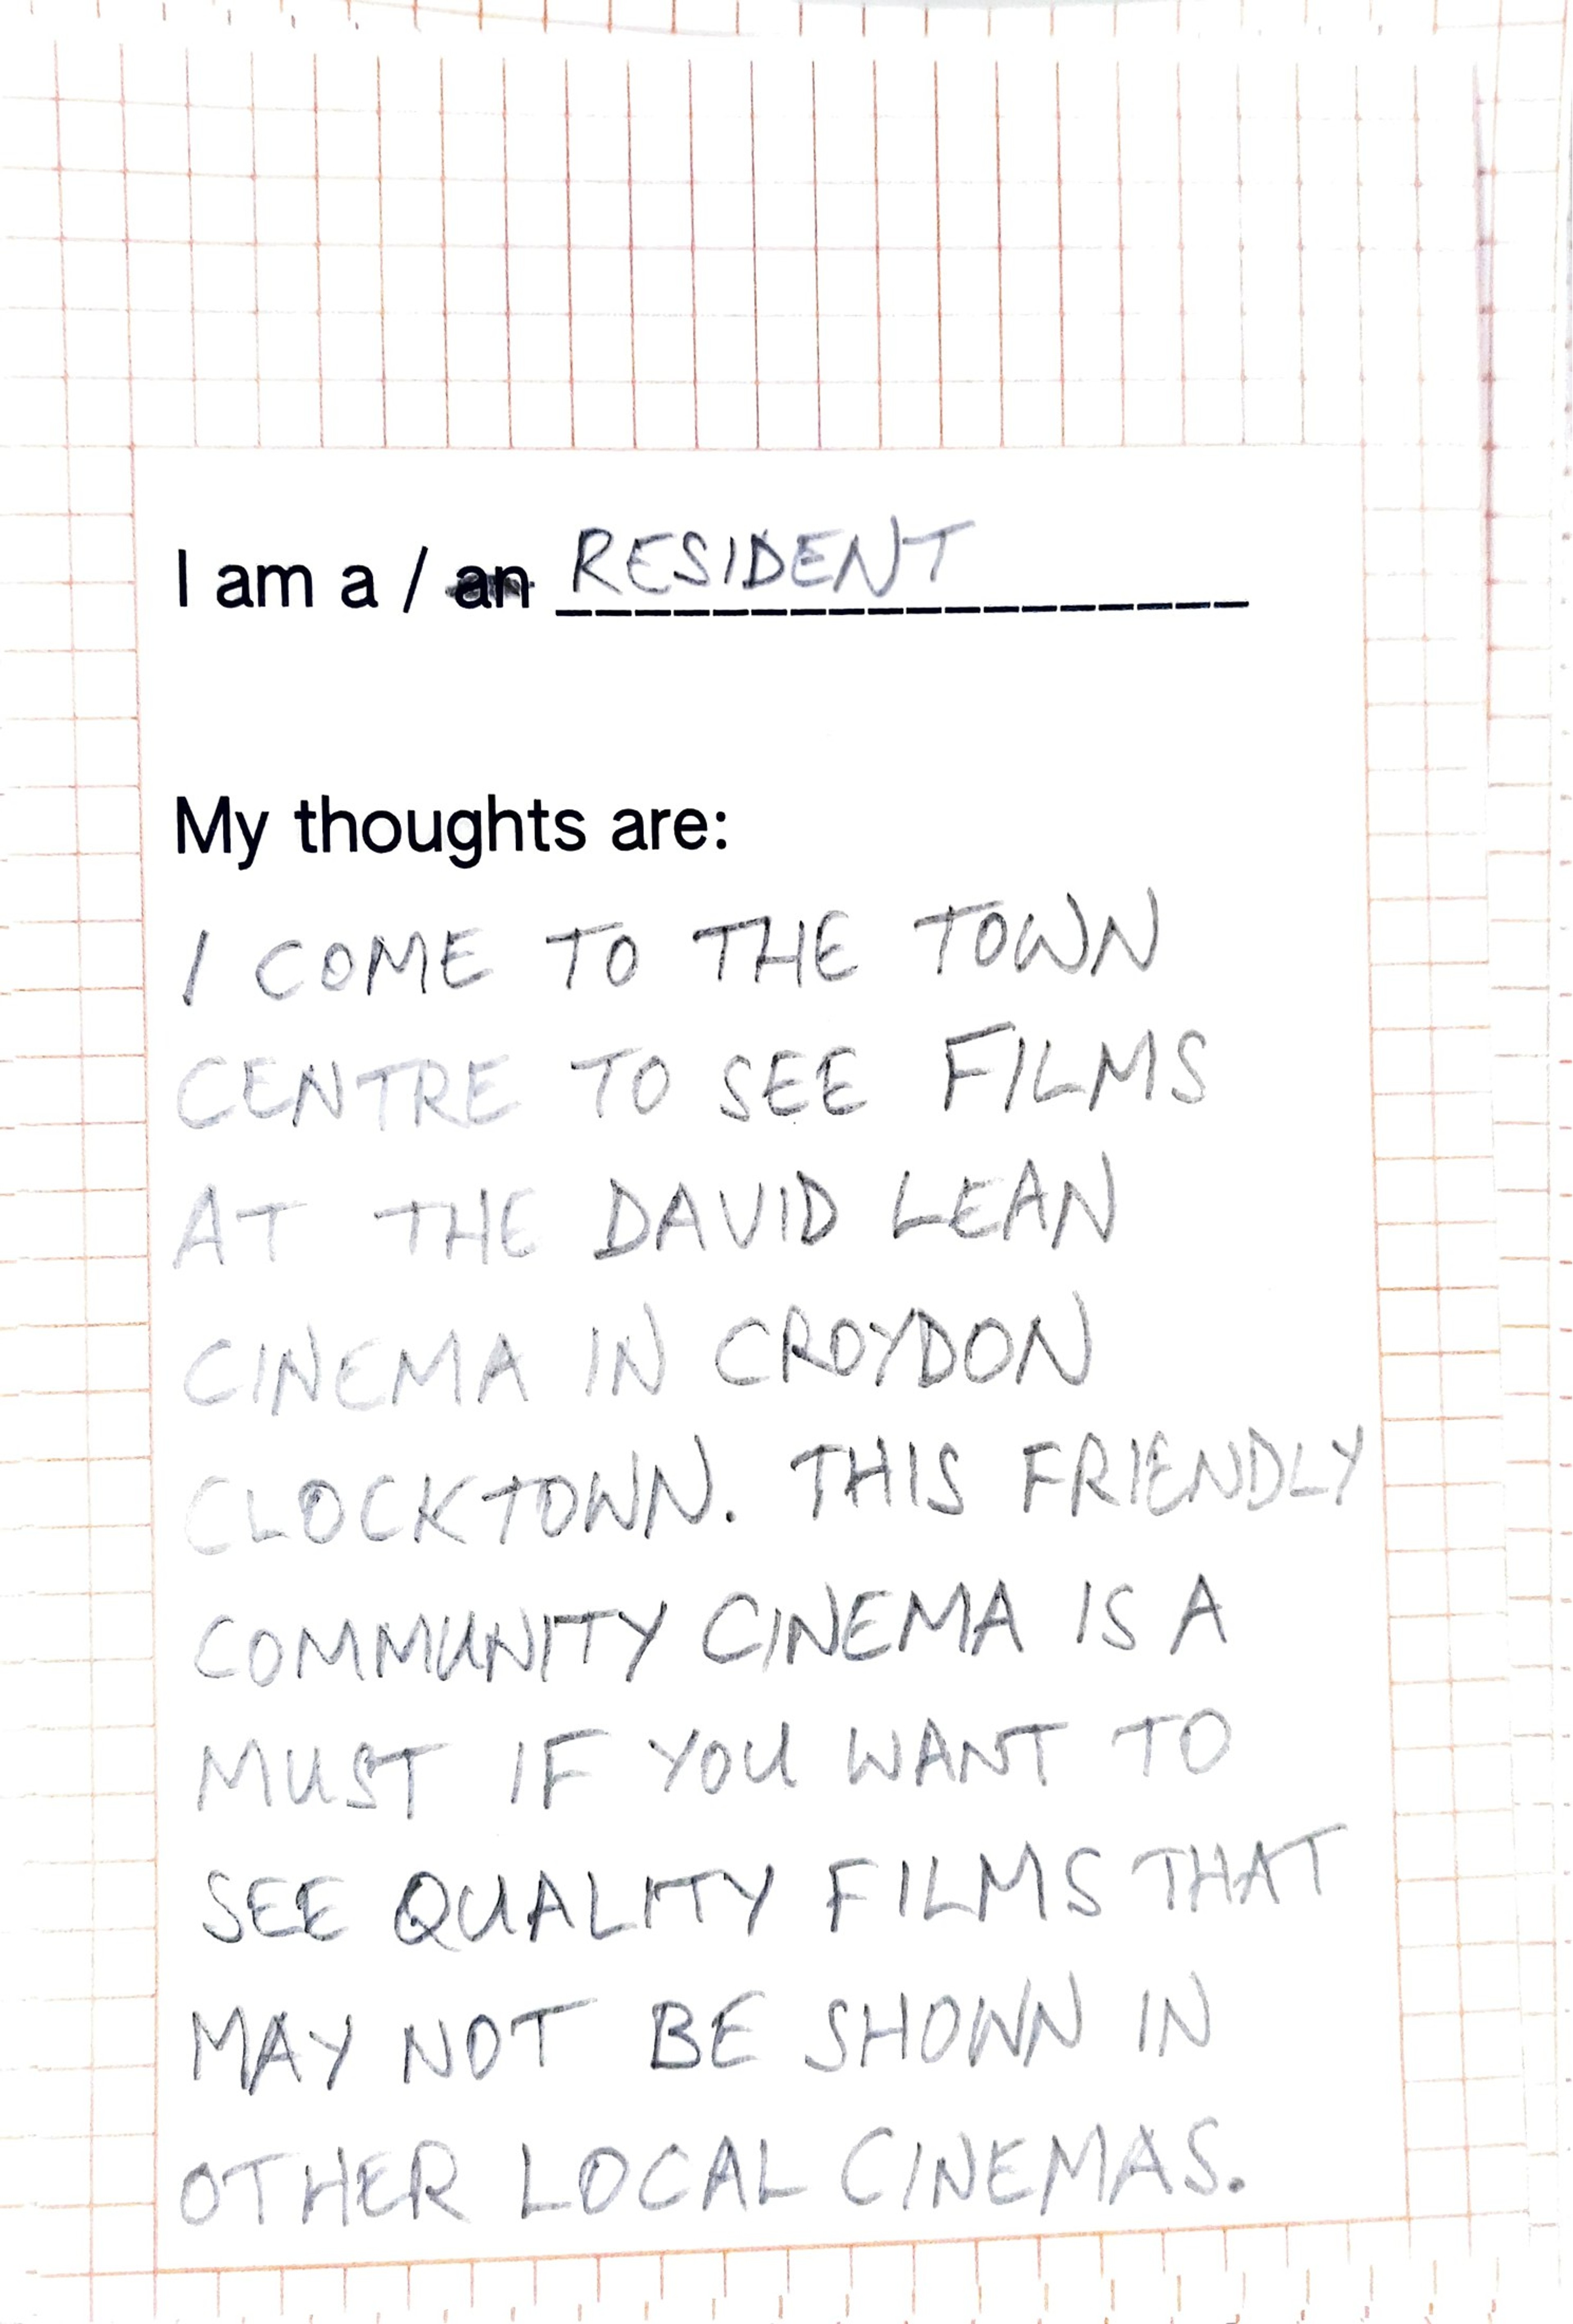 I am a / an RESIDENT
My thoughts are:
I COME TO THE TOWN
CENTRE TO SEE FILMS
AT THE DAVID LEAN
CINEMA IN CROYDON
CLOCKTOWN. THIS FRIENDLY
COMMUNITY CINEMA IS A
MUST IF YOU WANT TO
SEE QUALITY FILMS THAT
MAY NOT BE SHOWN IN
OTHER LOCAL CINEMAS.